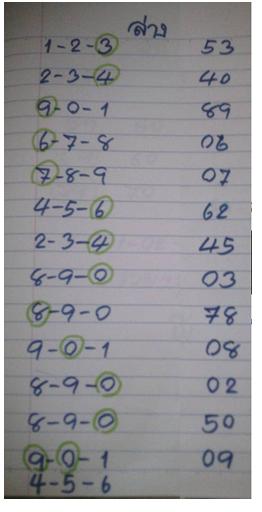 ล่าง
1-2-3 53
2-3-4 40
9-0-1 89
6-7-8 06
7-8-9 07
4-5-6 62
2-3-4 45
8-9-0 03
8-9-0 78
9-0-1 08
8-9-0 02
8-9-0 50
9-0-1 09
4-5-6